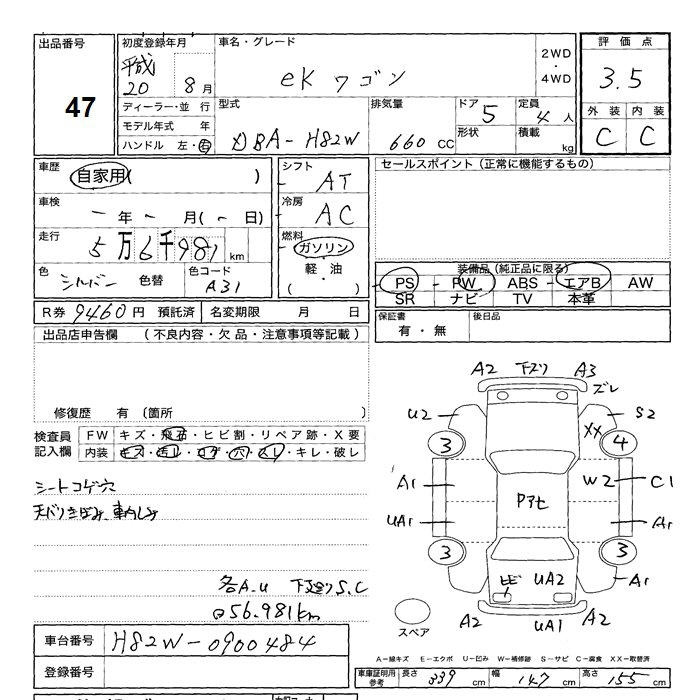 出品番号 初度登録年月 車名・グレード 評価点
47 平成20年 8月 eK ワゴン 2WD・4WD 3.5
ディーラー・並行 型式 排気量 ドア 5 定員 4人 外装 内装
モデル年式 年 DBA-H82W 660CC 形状 積載 kg C C
ハンドル 左・右
車歴 自家用( ) シフト AT セールスポイント(正常に機能するもの)
車検 ー年ー月(ー日) 冷房 AC
走行 5万6千981km 燃料 ガソリン
軽・油
( )
色 シルバー 色替 色コード A31
装備品(純正品に限る)
PS PW ABS エアB AW
SR ナビ TV 本革
R券 9460円 預託済 名変期限 月 日 保証書 有・無 後日品
出品店申告欄 (不良内容・欠品・注意事項等記載)
修復歴 有(箇所 )
検査員記入欄 FW キズ・飛石・ヒビ割・リペア跡・X要
内装 キズ・汚レ・コゲ・穴・スレ・キレ・破レ
シートコゲ穴
天バリきばみ、車内しみ
各A.U 下廻りS.C
56.981km
A2 下スリ A3 ズレ
U2 S2
3 XX 4
A1 W2 C1
Pアセ
UA1 A1
3 3
UA2 A1
A2 UA1 A2
スペア
車台番号 H82W-0900484
登録番号
A-線キズ E-エクボ U-凹み W-補修跡 S-サビ C-腐食 XX-取替済
車庫証明用参考 長さ 339cm 幅 147cm 高さ 155cm